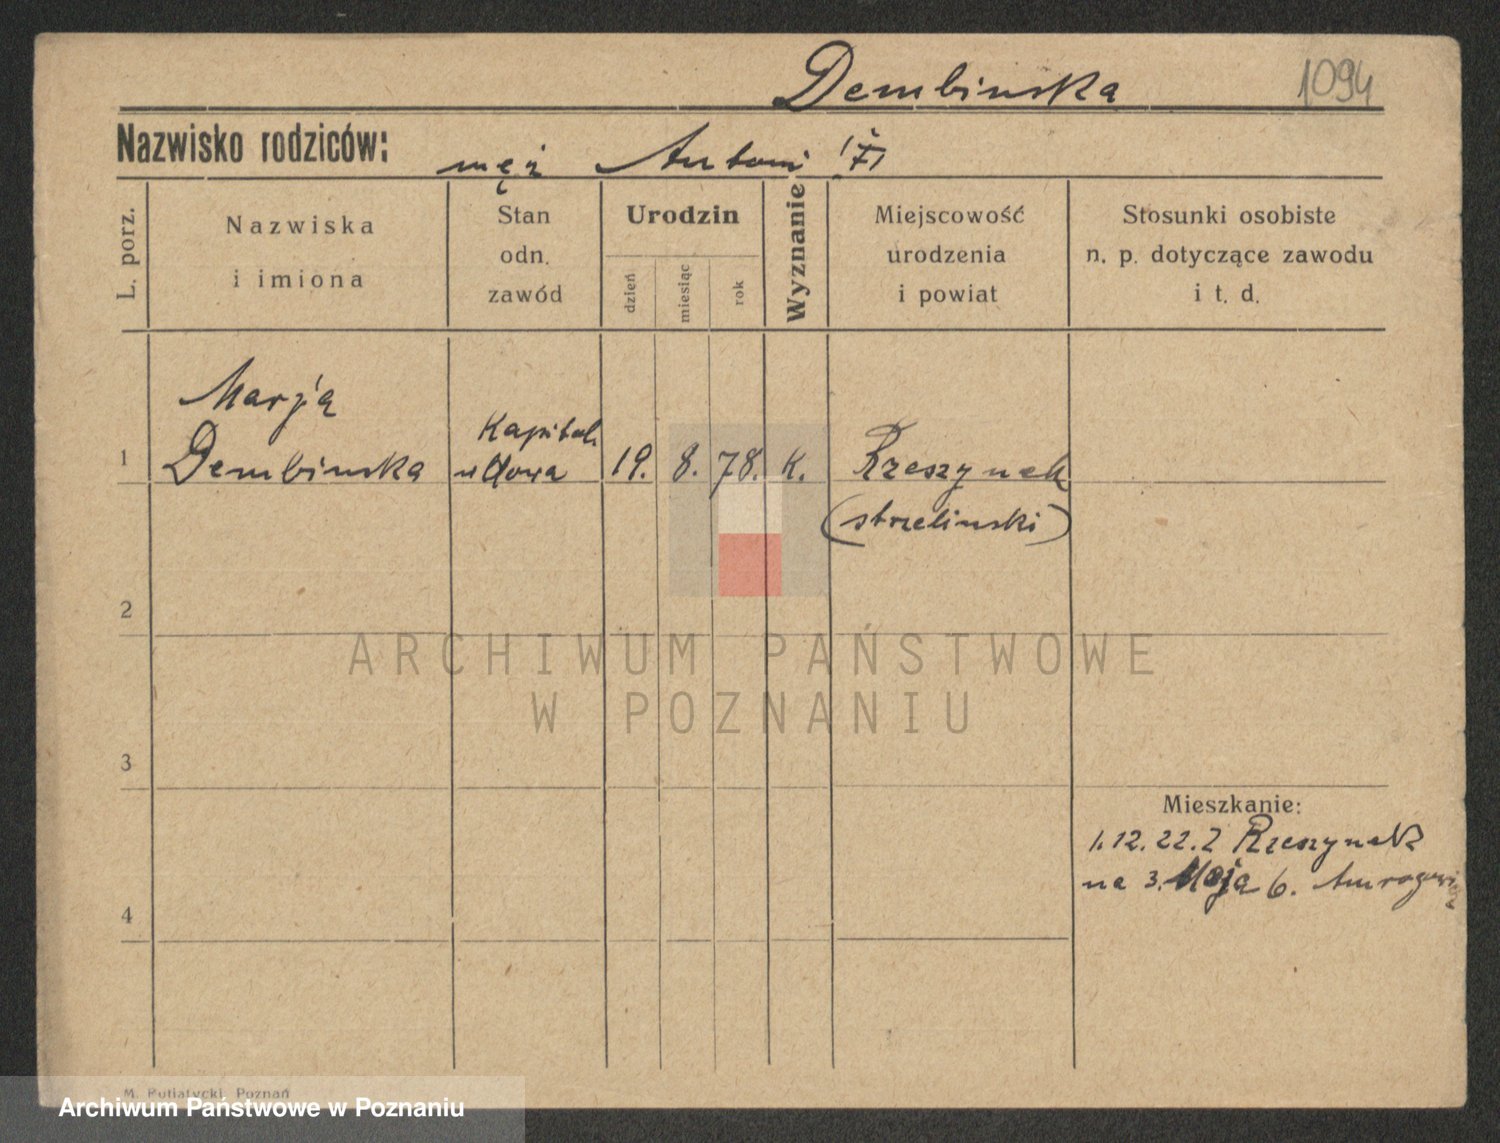 Dembinska
1094
Nazwisko rodziców:
męż Antoni
L. porz.
Nazwiska
i imiona
Stan
odn.
zawód
Urodzin
dzień
miesiąc
rok
Wyznanie
Miejscowość
urodzenia
i powiat
Stosunki osobiste
n. p. dotyczące zawodu
i t. d.
Marja
Kapital.
1 Dembinska wdowa 19. 8. 78. K. Rzeszynek
(strzelinski)
2
ARCHIWUM PAŃSTWOWE
W POZNANIU
3
Mieszkanie:
1.12.22. Z Rzeszynek
na 3. Maja 6.
4
M. Putiatycki, Poznań
Archiwum Państwowe w Poznaniu